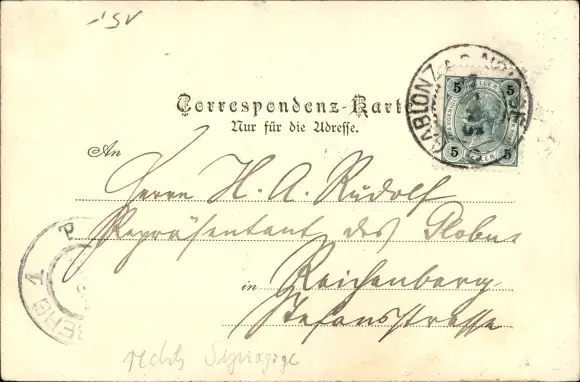 Correspondenz-Karte
Nur für die Adresse.
An
Herrn H. A. Rudolf
Repräsentant des Globus
in Reichenberg
Stefansstrasse
rechts Synagoge
GABLONZ A. D. NEISSE
5 5
5 5
BERG 1